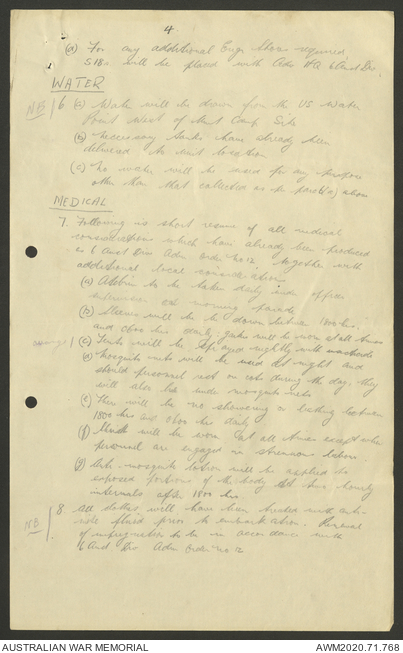 4
(d) For any additional Engr Stores required
will be placed with Adv HQ 6 Aust Div.
WATER
NB 6 (a) Water will be drawn from the US Water
Point West of Unit Camp Site
(b) Necessary tanks have already been
delivered to unit location
(c) No water will be used for any purpose
other than that collected as per para (a) above
MEDICAL
7. Following is short resume of all medical
considerations which have already been produced
in 6 Aust Div Adm Order No 12 together with
additional local considerations
(a) Atebrin to be taken daily under officer
supervision at morning parade
(b) Sleeves will be down before 1800 hrs
and 0800 hrs daily. will be worn at all times
(c) Tents will be sprayed nightly with
(d) Mosquito nets will be used at night and
should personnel rest on cots during the day they
will also be under mosquito nets
(e) There will be no showering or bathing between
1800 hrs and 0800 hrs daily
(f) will be worn at all times except when
personnel are engaged in strenuous labour.
(g) Anti-mosquito lotion will be applied to
exposed portions of the body at two hourly
intervals after 1800 hrs
NB 8. All clothes will have been treated with anti-
mite fluid prior to embarkation. Renewal
of impregnation to be in accordance with
6 Aust Div Adm Order No 12
AUSTRALIAN WAR MEMORIAL
AWM2020.71.768